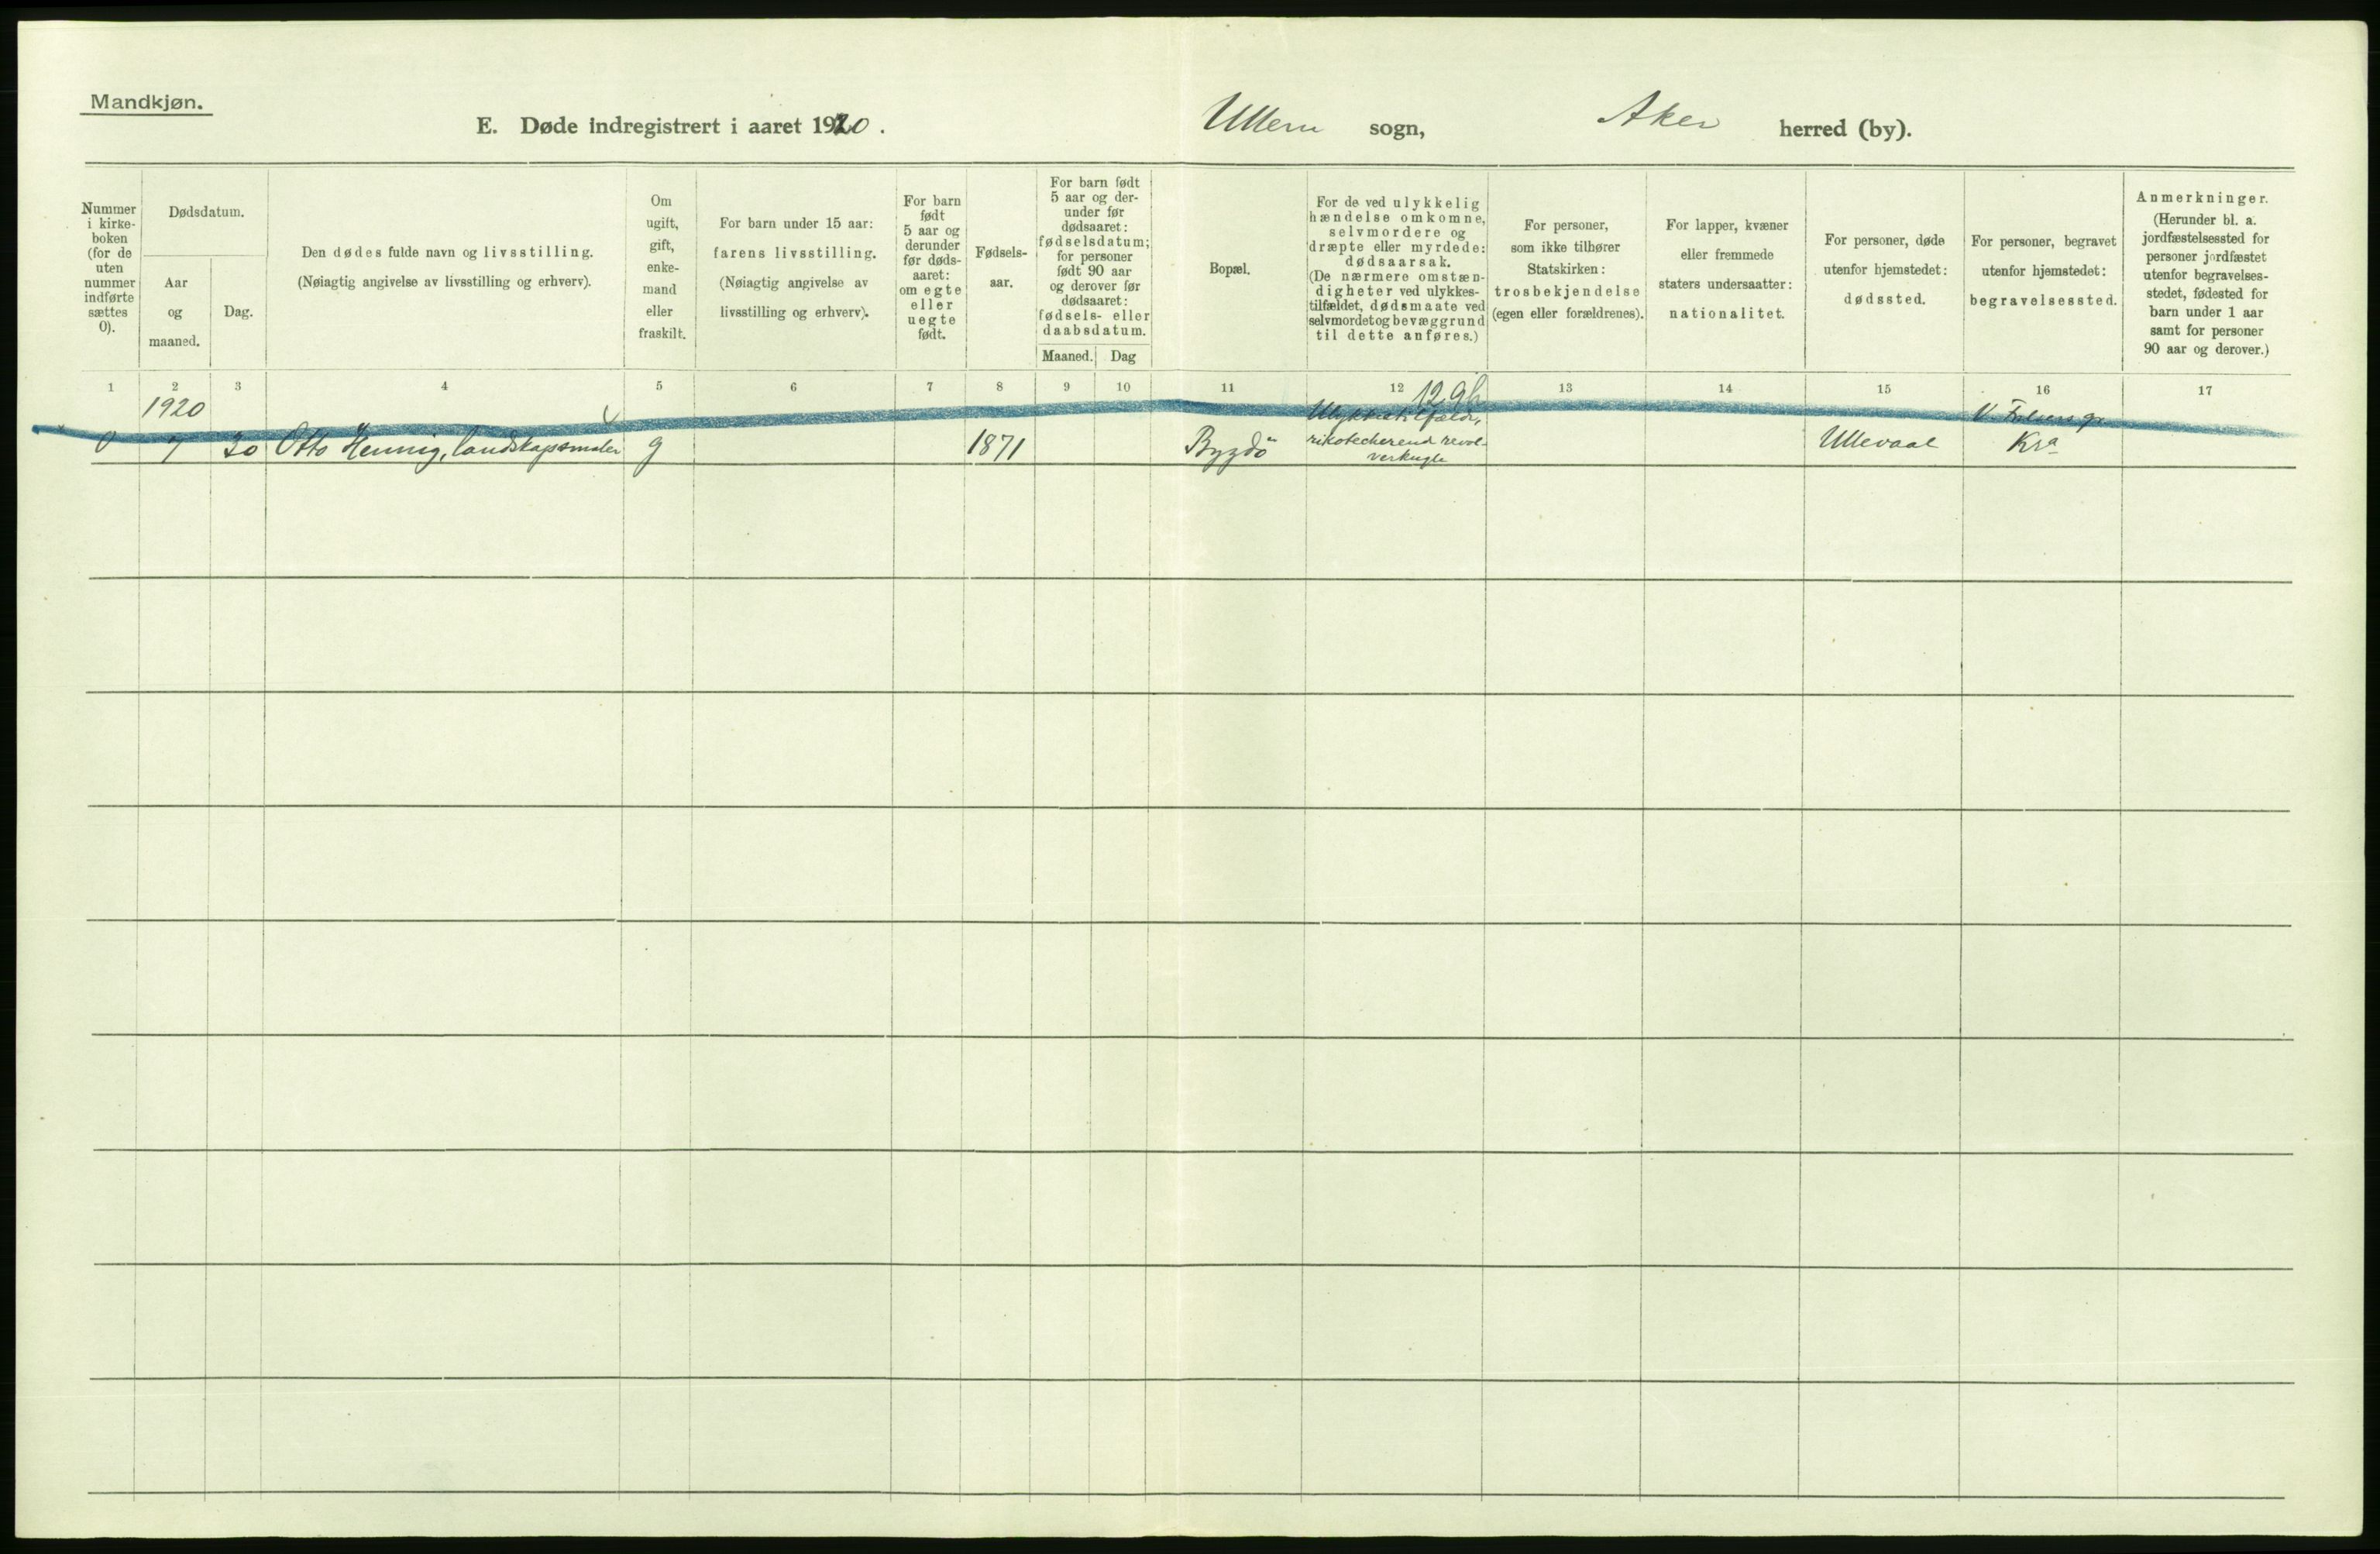 Mandkjøn.
E. Døde indregistrert i aaret 1920.
Ullern sogn, Aker herred (by).
Nummer
i kirke-
boken
(for de
uten
nummer
indførte
sættes
0).
Dødsdatum.
Aar
og
maaned.
Dag.
Den dødes fulde navn og livsstilling.
(Nøiagtig angivelse av livsstilling og erhverv).
Om
ugift,
gift,
enke-
mand
eller
fraskilt.
For barn under 15 aar:
farens livsstilling.
(Nøiagtig angivelse av
livsstilling og erhverv).
For barn
født
5 aar og
derunder
før døds-
aaret:
om egte
eller
uegte
født.
Fødsels-
aar.
For barn født
5 aar og der-
under før
dødsaaret:
fødselsdatum;
for personer
født 90 aar
og derover før
dødsaaret:
fødsels- eller
daabsdatum.
Maaned. Dag
Bopæl.
For de ved ulykkelig
hændelse omkomne,
selvmordere og
dræpte eller myrdede:
dødsaarsak.
(De nærmere omstæn-
digheter ved ulykkes-
tilfældet, dødsmaate ved
selvmordet og bevæggrund
til dette anføres.)
For personer,
som ikke tilhører
Statskirken:
trosbekjendelse
(egen eller forældrenes).
For lapper, kvæner
eller fremmede
staters undersaatter:
nationalitet.
For personer, døde
utenfor hjemstedet:
dødssted.
For personer, begravet
utenfor hjemstedet:
begravelsessted.
Anmerkninger.
(Herunder bl. a.
jordfæstelsessted for
personer jordfæstet
utenfor begravelses-
stedet, fødested for
barn under 1 aar
samt for personer
90 aar og derover.)
1 2 3 4 5 6 7 8 9 10 11 12 13 14 15 16 17
1920
0 7 30 Otto Hennig, landskapsmaler g 1871 Bygdö
Ulykkestilfælde,
rikotecherend revol-
verkugle
Ullevaal
V.
Kra